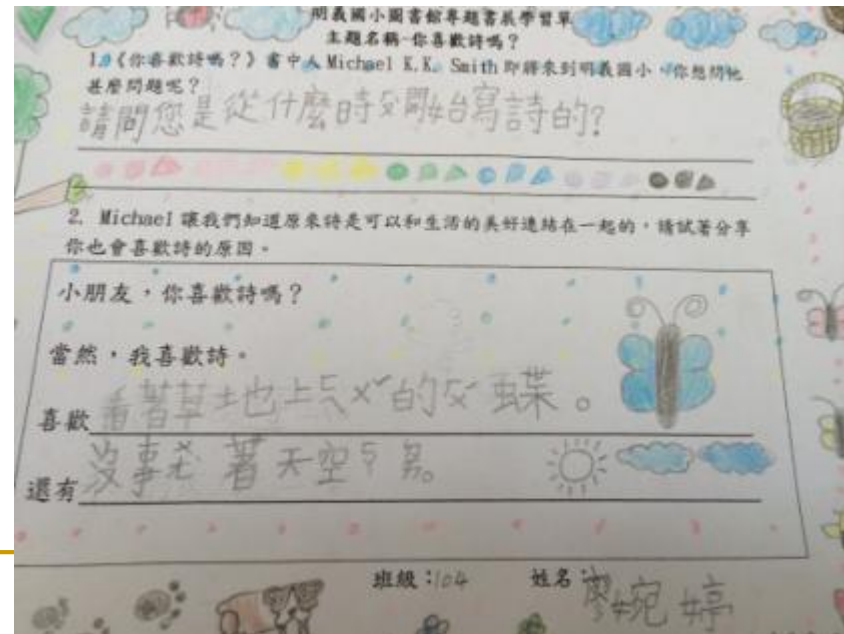 明義國小圖書館專題書展學習單
主題名稱-你喜歡詩嗎?
1.《你喜歡詩嗎?》書中人 Michael K.K. Smith 即將來到明義國小,你想問他
甚麼問題呢?
請問您是從什麼時ㄏ開始寫詩的?
2. Michael 讓我們知道原來詩是可以和生活的美好連結在一起的,請試著分享
你也會喜歡詩的原因。
小朋友,你喜歡詩嗎?
當然,我喜歡詩。
喜歡看著草地上 的 蝶。
還有沒事 著天空
班級:104 姓名:廖婉婷